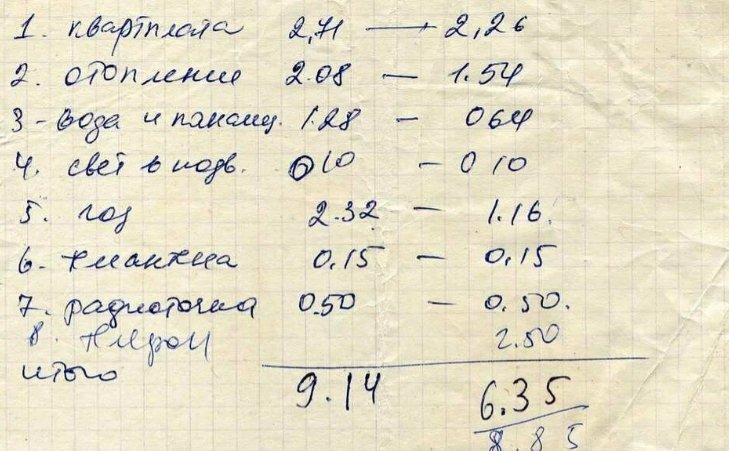 1. квартплата 2,71 — 2,26
2. отопление 2.08 — 1.54
3 - вода и 1.28 - 0 64
4. свет в подв. 0 10 - 0 10
5. газ 2.32 - 1.16.
6. 0.15 - 0.15
7. радиоточка 0.50 - 0.50.
8. 2.50
итого 9.14 6.35
8.85